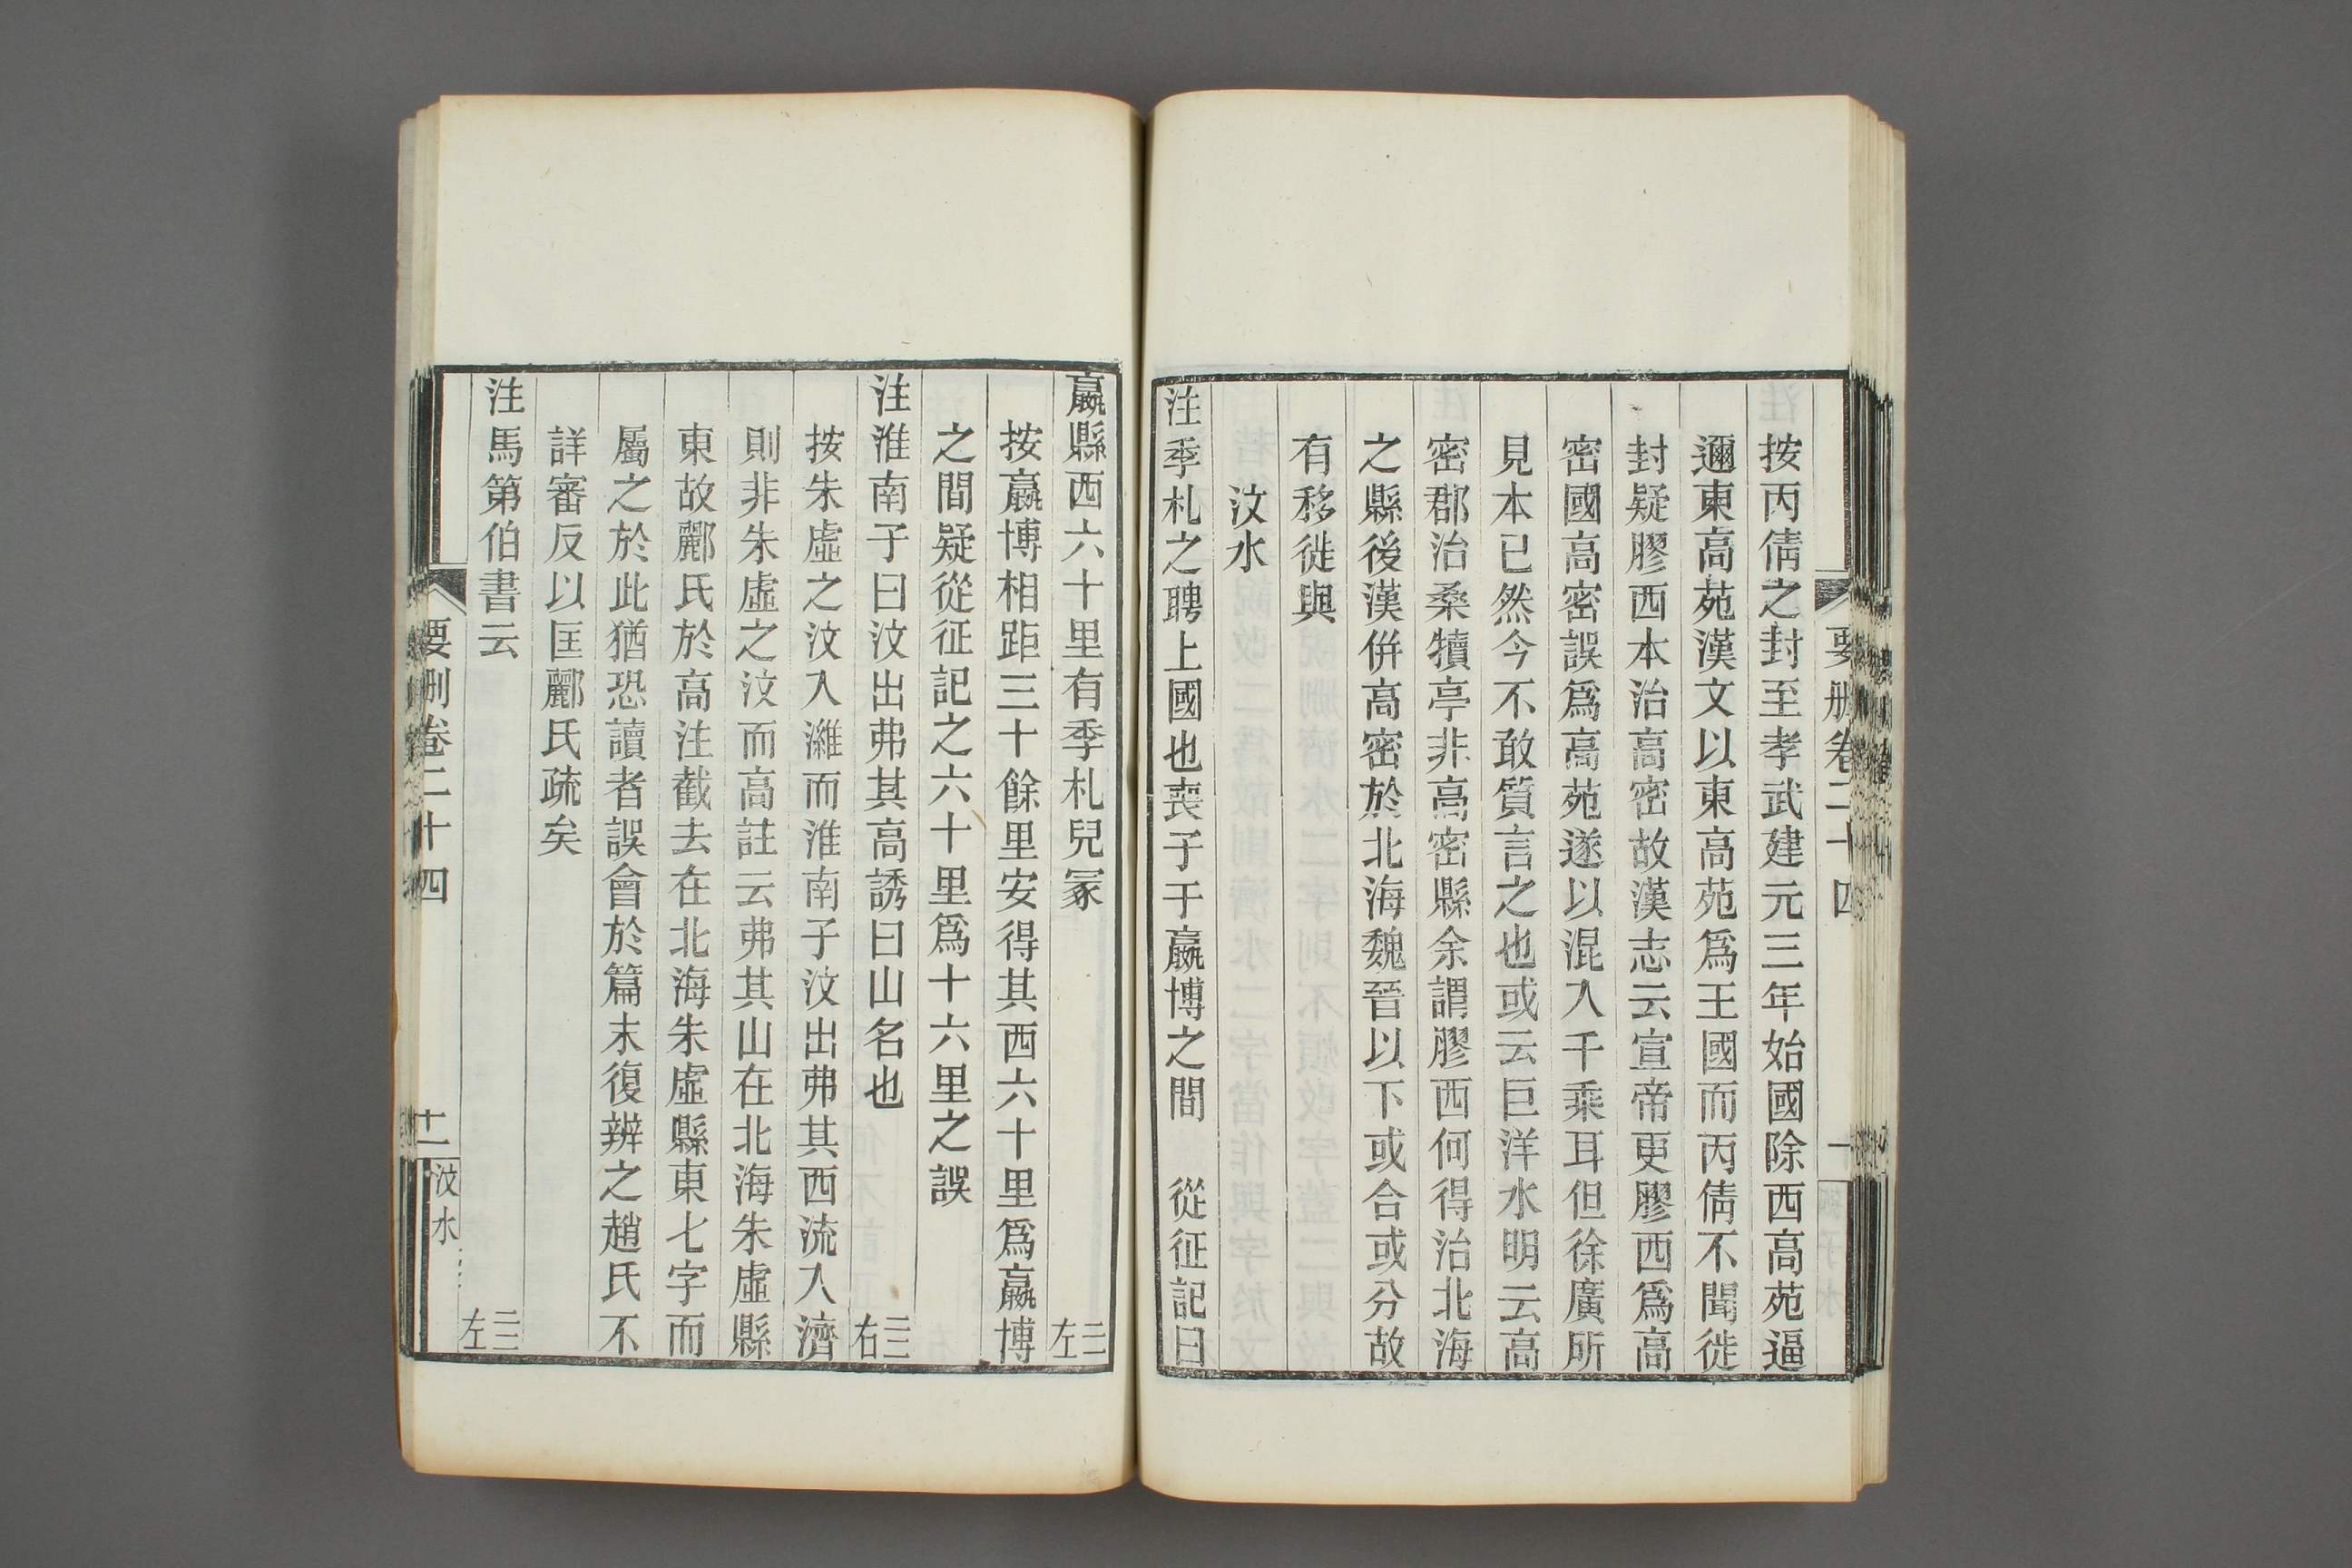 要刪卷二十四
按丙倩之封至孝武建元三年始國除西高苑逼
邇東高苑漢文以東高苑爲王國而丙倩不聞徙
封疑膠西本治高密故漢志云宣帝更膠西爲高
密國高密誤爲高苑遂以混入千乘耳但徐廣所
見本已然今不敢質言之也或云巨洋水明云高
密郡治桑犢亭非高密縣余謂膠西何得治北海
之縣後漢併高密於北海魏晉以下或合或分故
有移徙與
汶水
注季札之聘上國也喪子于嬴博之間　從征記曰
嬴縣西六十里有季札兒冢　二左
按嬴博相距三十餘里安得其西六十里爲嬴博
之間疑從征記之六十里爲十六里之誤
注淮南子曰汶出弗其高誘曰山名也　三右
按朱虛之汶入濰而淮南子汶出弗其西流入濟
則非朱虛之汶而高註云弗其山在北海朱虛縣
東故酈氏於高注截去在北海朱虛縣東七字而
屬之於此猶恐讀者誤會於篇末復辨之趙氏不
詳審反以匡酈氏疏矣
注馬第伯書云　三左
要刪卷二十四
十一
汶水